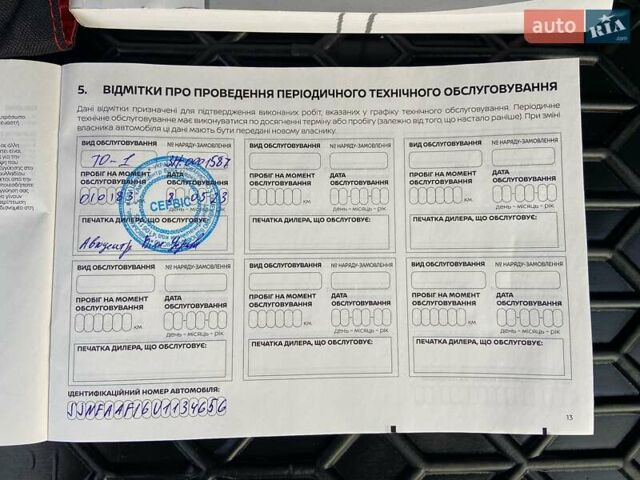 auto RIA.com
5. ВІДМІТКИ ПРО ПРОВЕДЕННЯ ПЕРІОДИЧНОГО ТЕХНІЧНОГО ОБСЛУГОВУВАННЯ
Дані відмітки призначені для підтвердження виконаних робіт, вказаних у графіку технічного обслуговування. Періодичне
технічне обслуговування має виконуватися по досягненні терміну або пробігу (залежно від того, що настало раніше). При зміні
власника автомобіля ці дані мають бути передані новому власнику.
ВИД ОБСЛУГОВУВАННЯ № НАРЯДУ-ЗАМОВЛЕННЯ
ТО-1
ПРОБІГ НА МОМЕНТ ОБСЛУГОВУВАННЯ ДАТА ОБСЛУГОВУВАННЯ
СЕРВІС
ПЕЧАТКА ДИЛЕРА, ЩО ОБСЛУГОВУЄ:
Автоцентр
ВИД ОБСЛУГОВУВАННЯ № НАРЯДУ-ЗАМОВЛЕННЯ
ПРОБІГ НА МОМЕНТ ОБСЛУГОВУВАННЯ ДАТА ОБСЛУГОВУВАННЯ
км день – місяць – рік
ПЕЧАТКА ДИЛЕРА, ЩО ОБСЛУГОВУЄ:
ВИД ОБСЛУГОВУВАННЯ № НАРЯДУ-ЗАМОВЛЕННЯ
ПРОБІГ НА МОМЕНТ ОБСЛУГОВУВАННЯ ДАТА ОБСЛУГОВУВАННЯ
км день – місяць – рік
ПЕЧАТКА ДИЛЕРА, ЩО ОБСЛУГОВУЄ:
ВИД ОБСЛУГОВУВАННЯ № НАРЯДУ-ЗАМОВЛЕННЯ
ПРОБІГ НА МОМЕНТ ОБСЛУГОВУВАННЯ ДАТА ОБСЛУГОВУВАННЯ
км день – місяць – рік
ПЕЧАТКА ДИЛЕРА, ЩО ОБСЛУГОВУЄ:
ВИД ОБСЛУГОВУВАННЯ № НАРЯДУ-ЗАМОВЛЕННЯ
ПРОБІГ НА МОМЕНТ ОБСЛУГОВУВАННЯ ДАТА ОБСЛУГОВУВАННЯ
км день – місяць – рік
ПЕЧАТКА ДИЛЕРА, ЩО ОБСЛУГОВУЄ:
ВИД ОБСЛУГОВУВАННЯ № НАРЯДУ-ЗАМОВЛЕННЯ
ПРОБІГ НА МОМЕНТ ОБСЛУГОВУВАННЯ ДАТА ОБСЛУГОВУВАННЯ
км день – місяць – рік
ПЕЧАТКА ДИЛЕРА, ЩО ОБСЛУГОВУЄ:
ІДЕНТИФІКАЦІЙНИЙ НОМЕР АВТОМОБІЛЯ:
SJNFAAF16U1134656
13